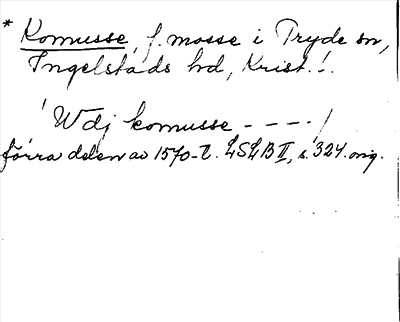 * Komusse, f. mosse i Tryde sn,
Ingelstads hd, Krist. l.
Wdj komusse - - - - /
förra delen av 1570-t. LSLB II, s. 324. orig.